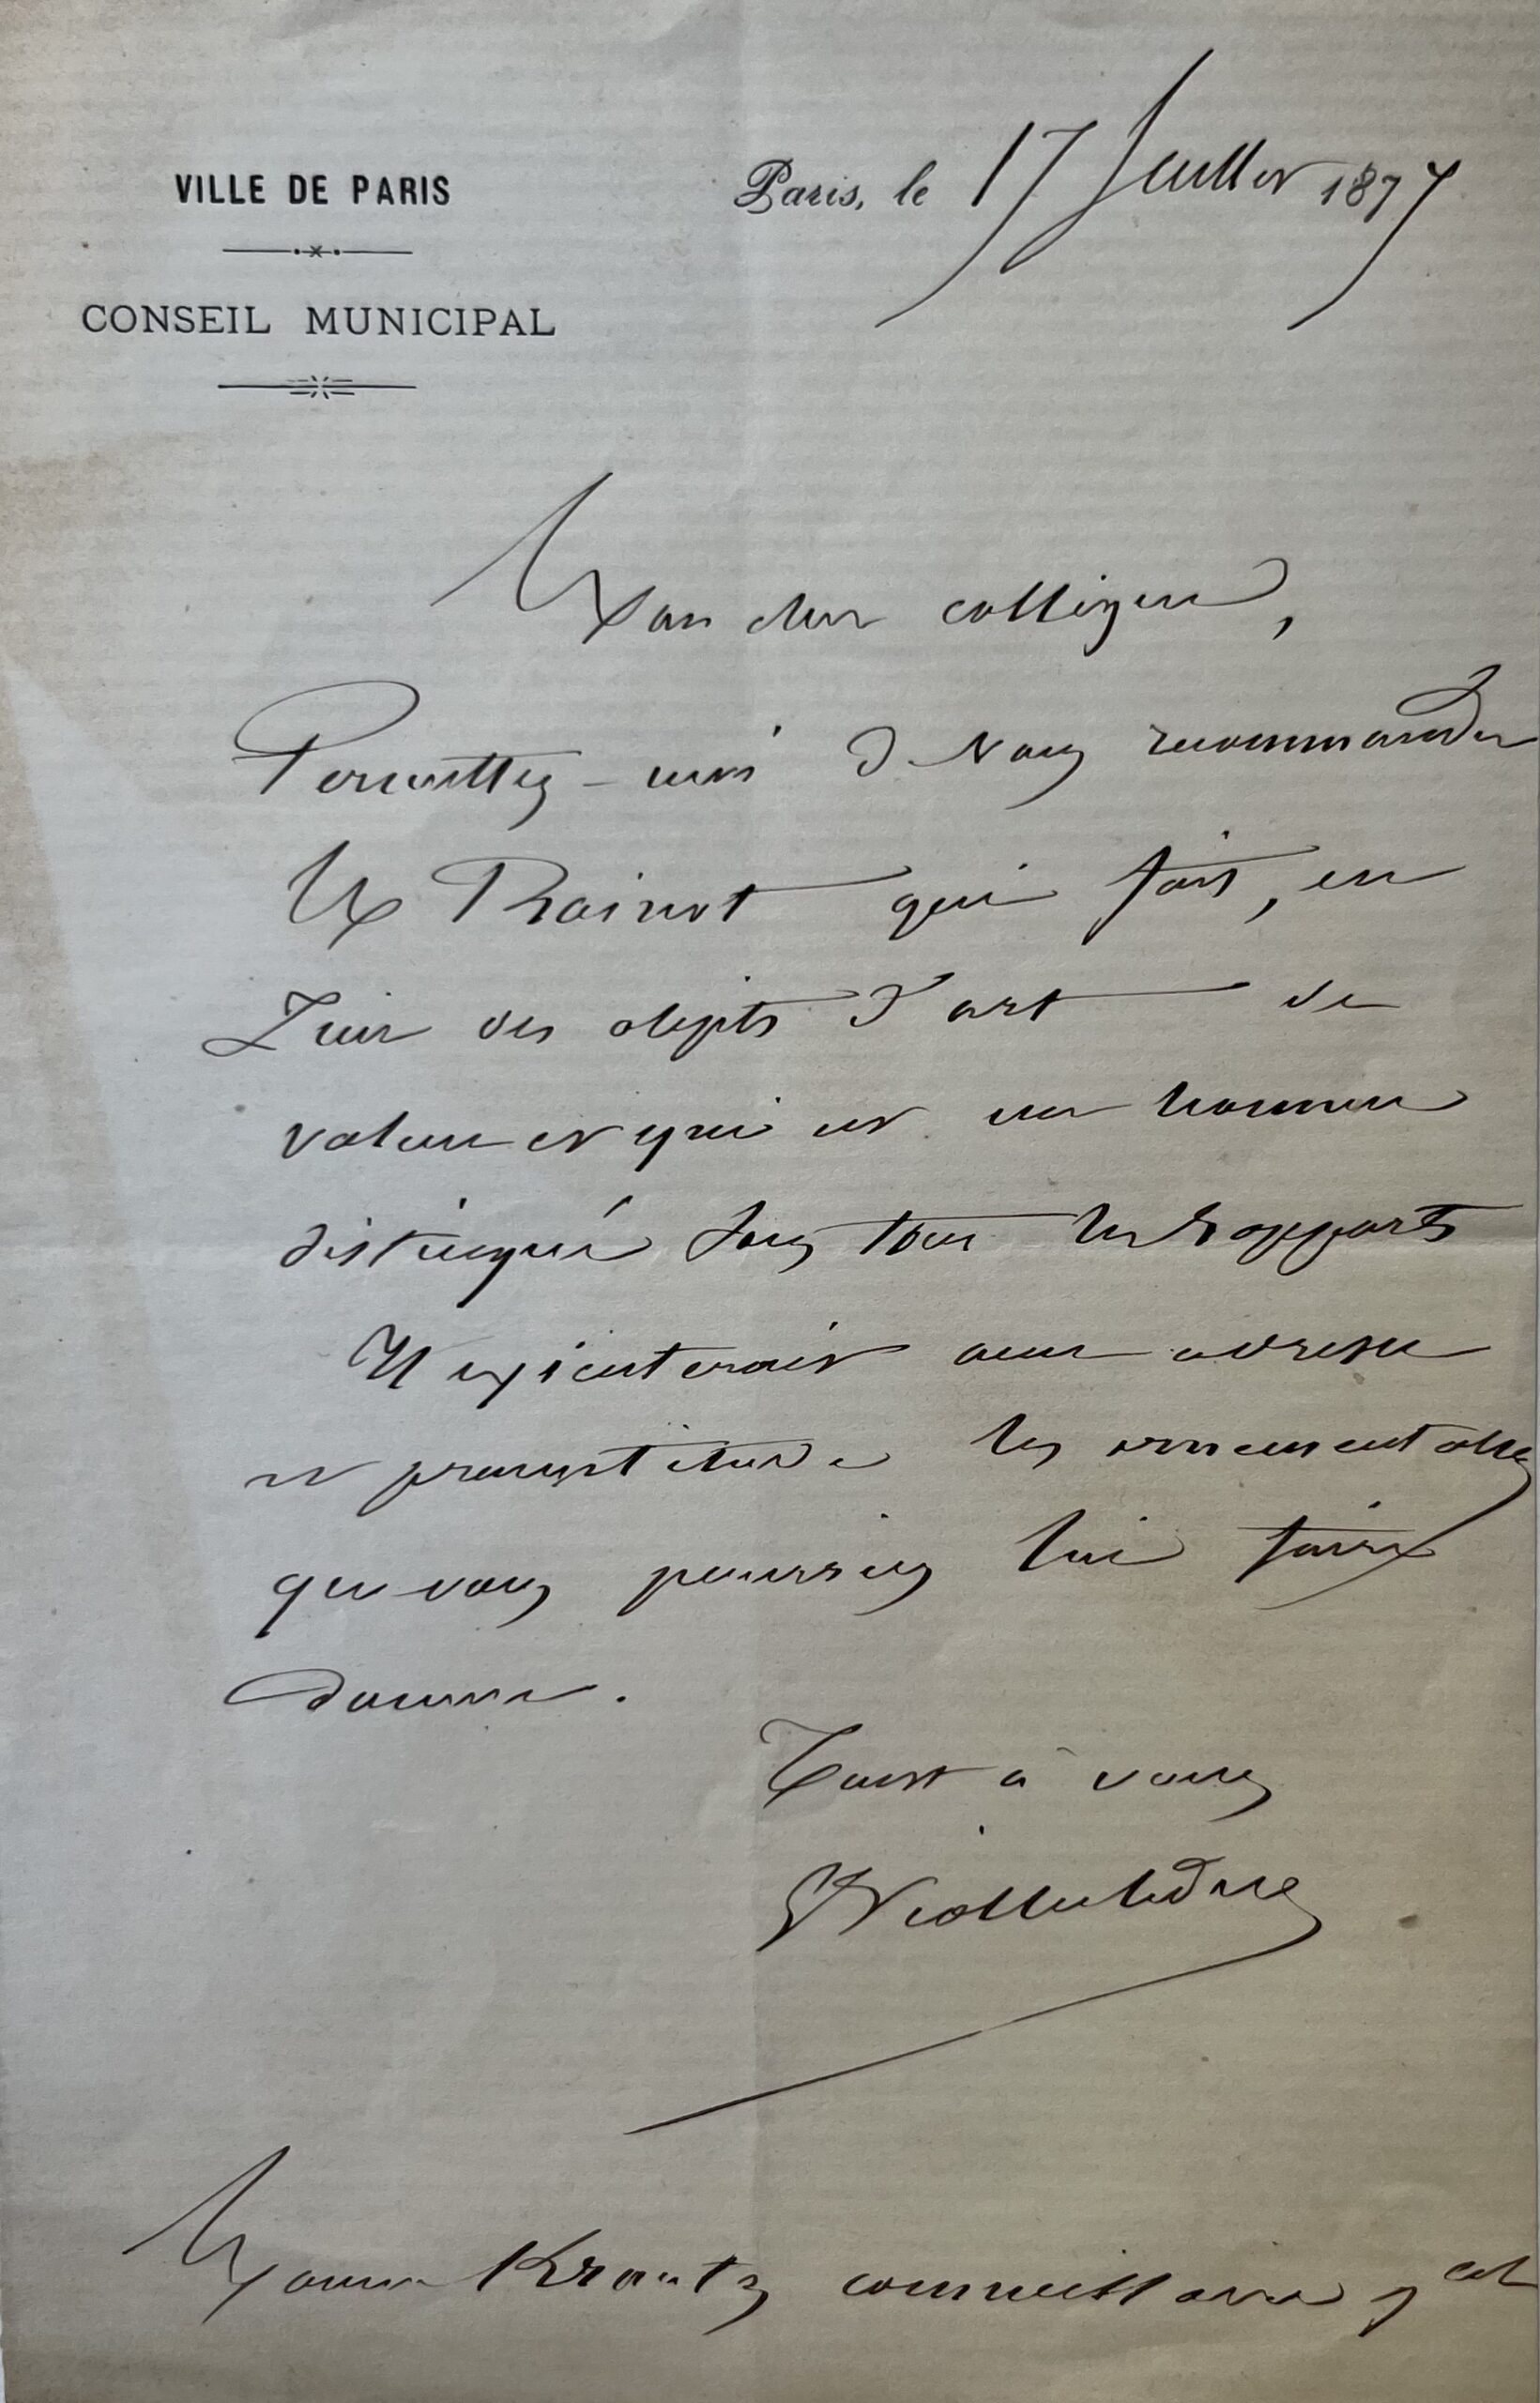 VILLE DE PARIS
CONSEIL MUNICIPAL
Paris, le 17 Juillet 1877
Mon cher collègue,
Permettez-moi de vous recommander
M qui fait, en
des objets d'art de
valeur et qui est un homme
distingué sous tous les rapports
Il exécuterait avec adresse
et promptitude les
que vous pourriez lui faire
donner.
Tout à vous
EViolletleDuc
Monsieur Krantz commissaire gal